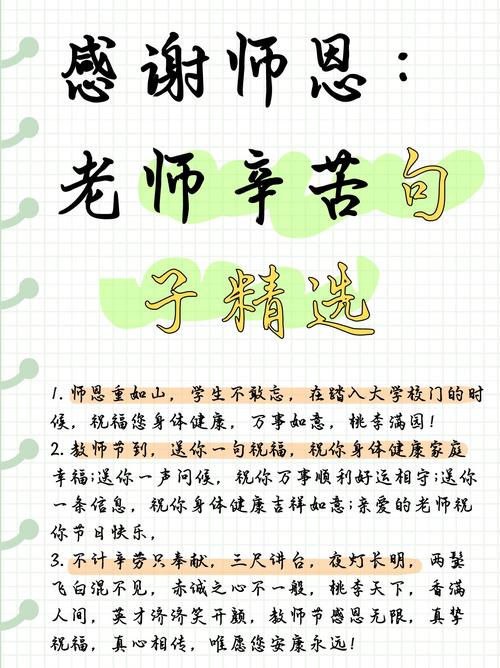 感谢师恩：
老师辛苦句
子精选
1. 师恩重如山，学生不敢忘，在踏入大学校门的时
候，祝福您身体健康，万事如意，桃李满园！
2. 教师节到，送你一句祝福，祝你身体健康家庭
幸福；送你一声问候，祝你万事顺利好运相守；送你
一条信息，祝你身体健康吉祥如意；亲爱的老师祝
你节日快乐，
3. 不计辛劳只奉献，三尺讲台，夜灯长明，两鬓
飞白混不见，赤诚之心不一般，桃李天下，香满
人间，英才济济笑开颜，教师节感恩无限，真挚
祝福，真心相传，唯愿您安康永远！